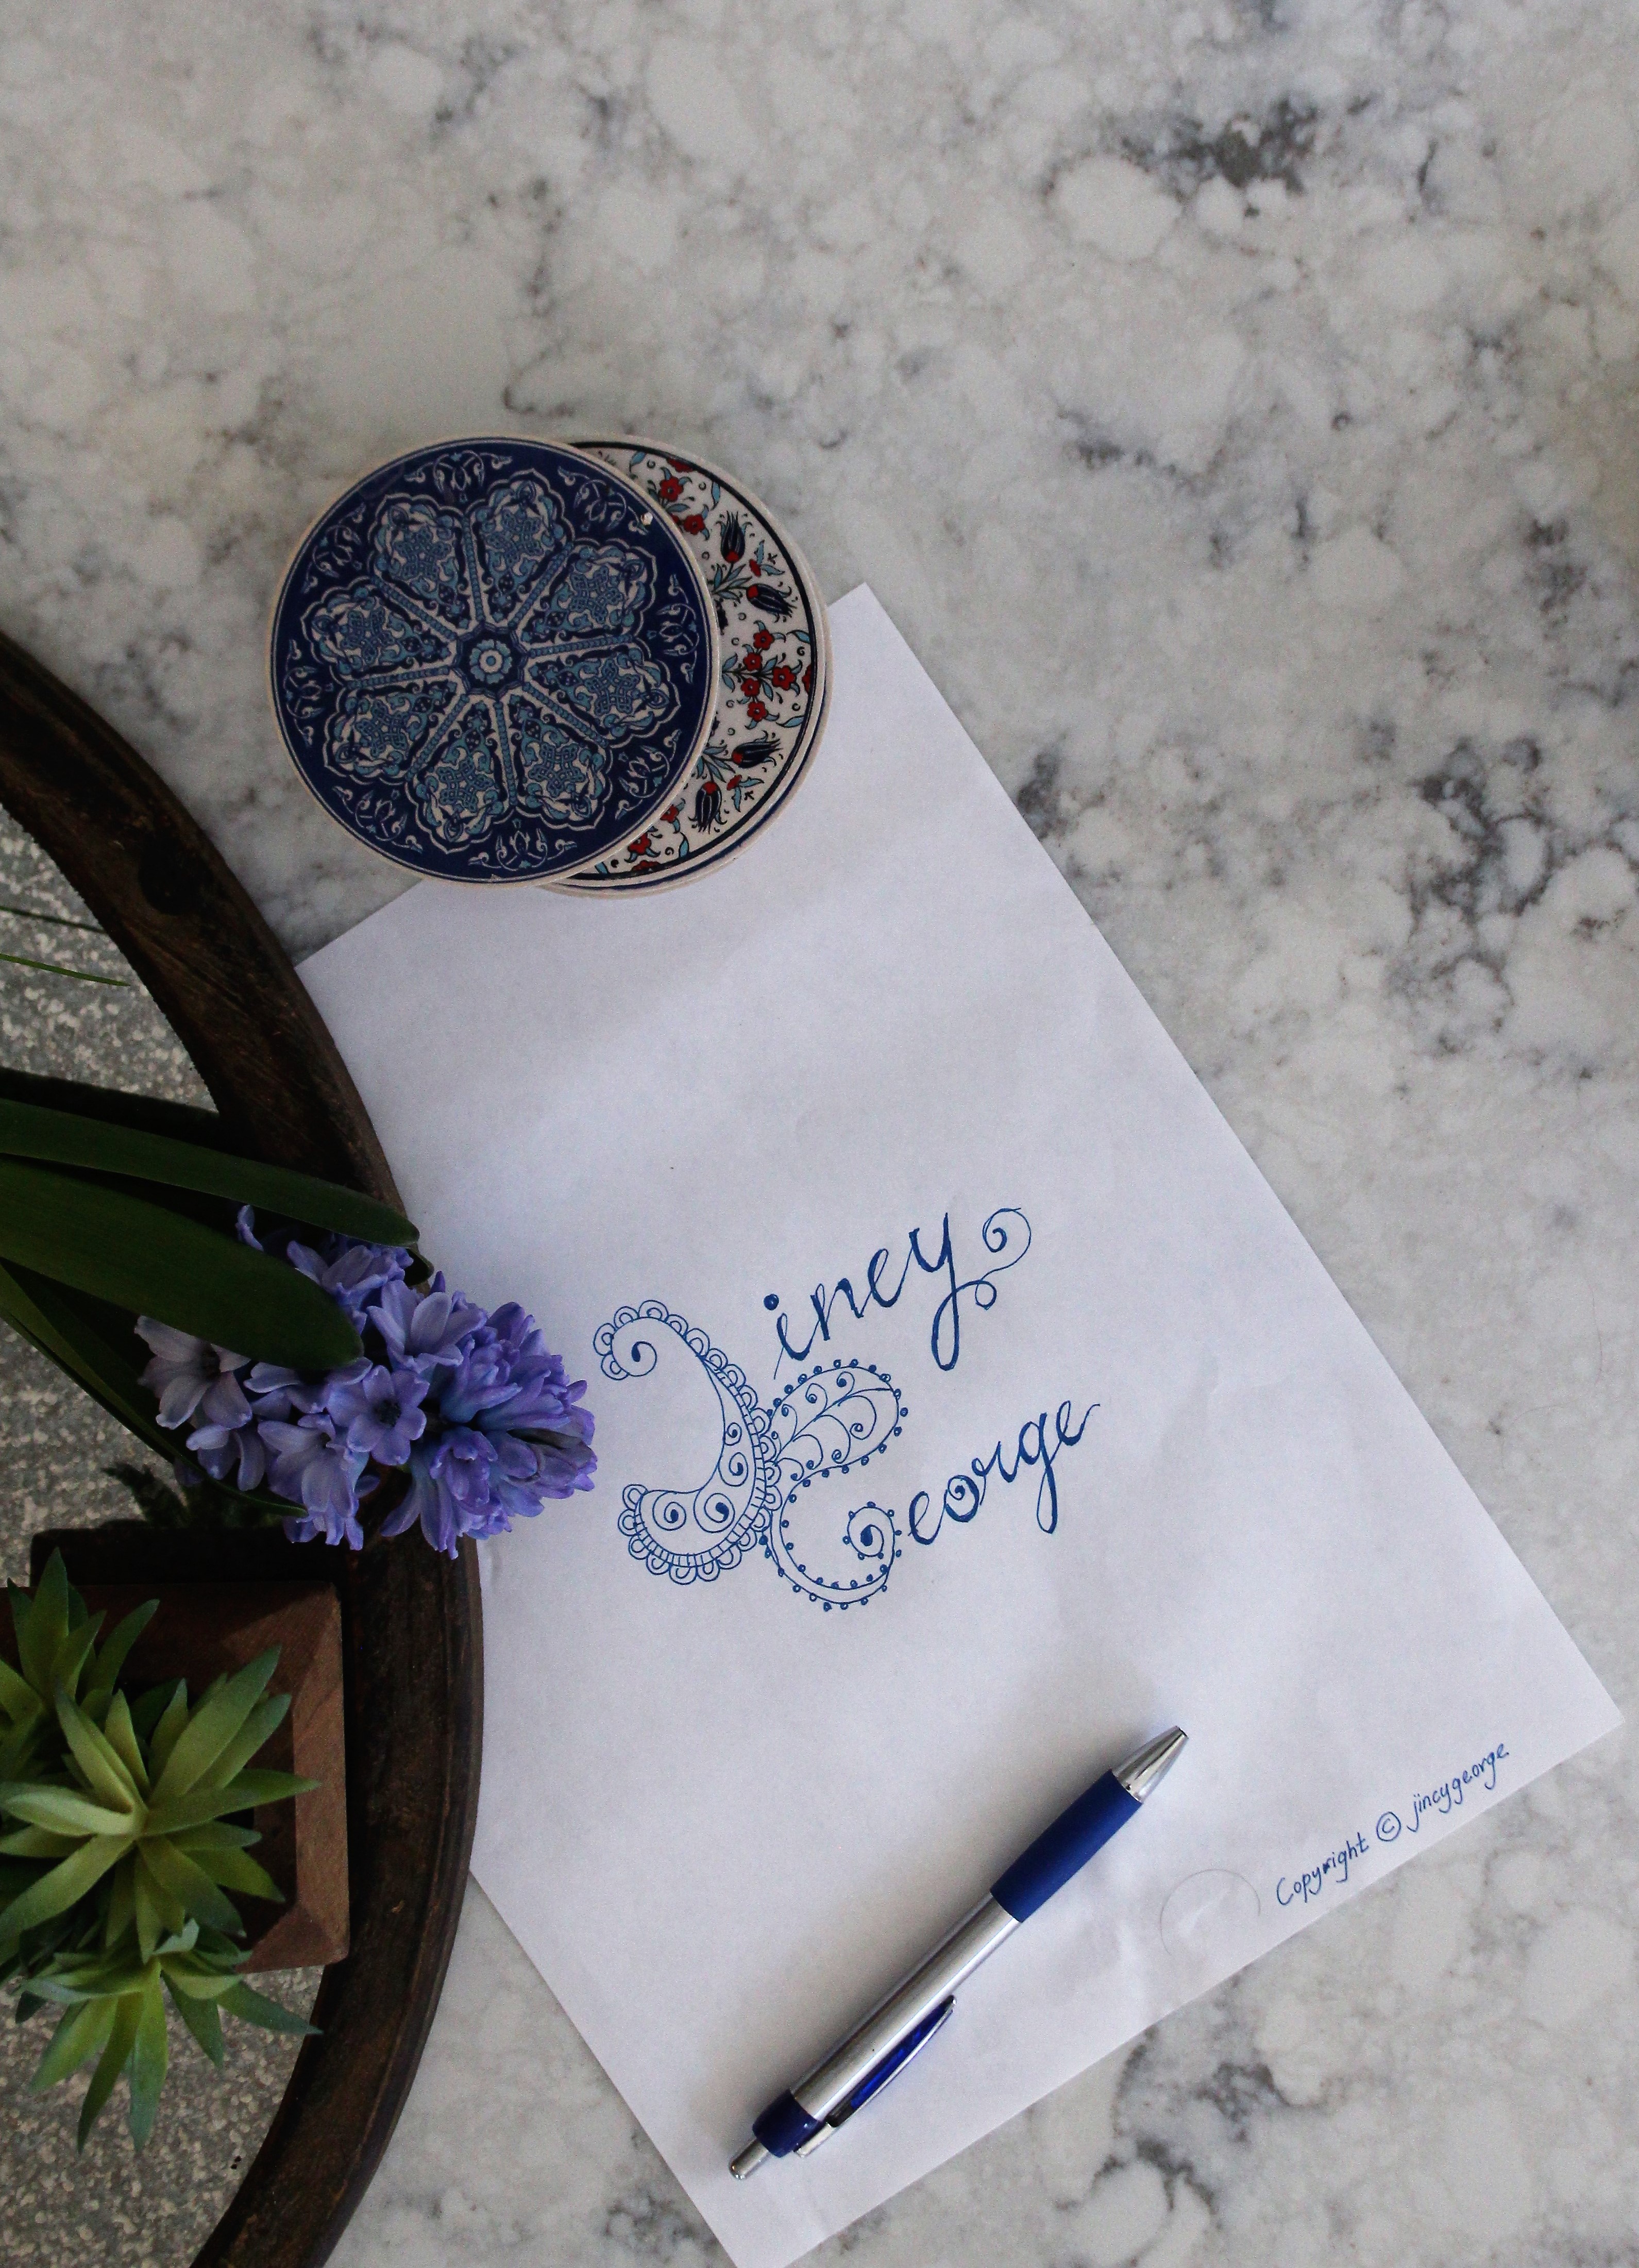 Jincy
George
Copyright © jincygeorge